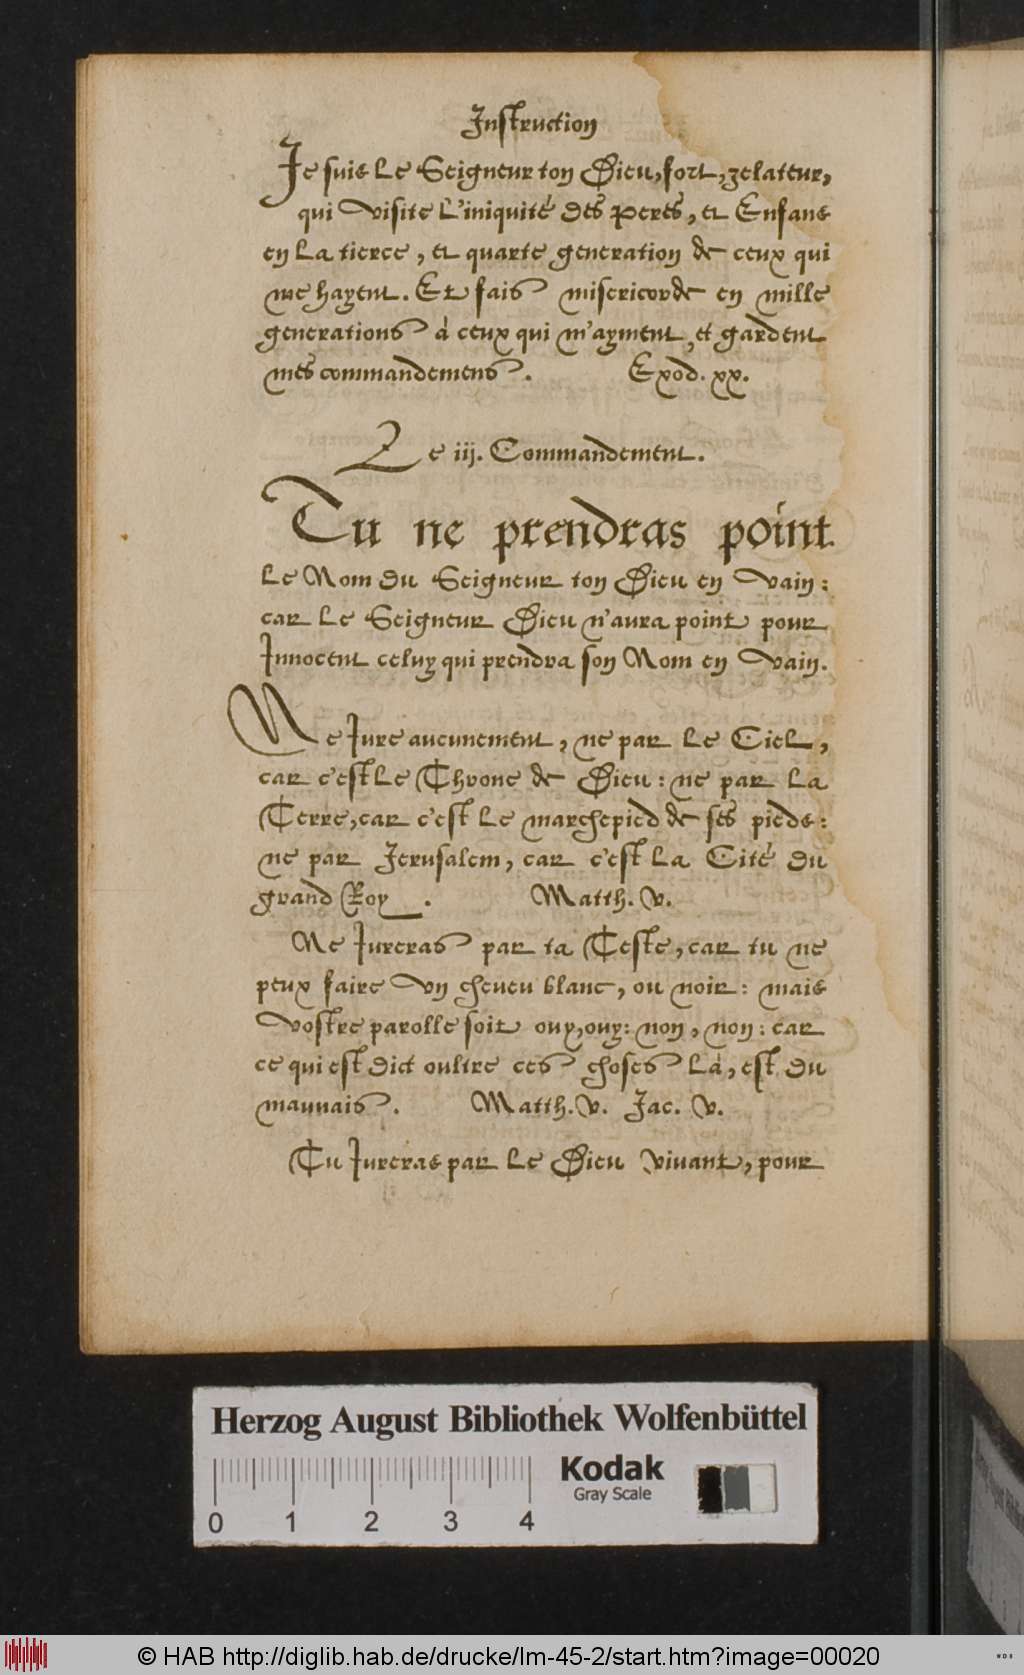 Instruction
Je suis Le Seigneur ton Dieu, fort, zelateur,
qui visite L'iniquité des Peres, et Enfans
en La tierce, et quarte generation de ceux qui
me hayent. Et fais misericorde en mille
generations à ceux qui m'ayment, et gardent
mes commandemens. Exod. xx.
Le iij. Commandement.
Tu ne prendras point
Le Nom du Seigneur ton Dieu en vain:
car Le Seigneur Dieu n'aura point pour
Innocent celuy qui prendra son Nom en vain.
Ne Jure aucunement, ne par Le Ciel,
car c'est Le Throne de Dieu: ne par La
Terre, car c'est Le marchepied de ses pieds:
ne par Jerusalem, car c'est La Cité du
grand Roy. Matth. v.
Ne Jureras par ta Teste, car tu ne
peux faire un cheveu blanc, ou noir: mais
vostre parolle soit ouy, ouy: non, non: car
ce qui est dict oultre ces choses Là, est du
mauvais. Matth. v. Jac. v.
Tu Jureras par Le Dieu vivant, pour
Herzog August Bibliothek Wolfenbüttel
Kodak
Gray Scale
0 1 2 3 4
© HAB http://diglib.hab.de/drucke/lm-45-2/start.htm?image=00020